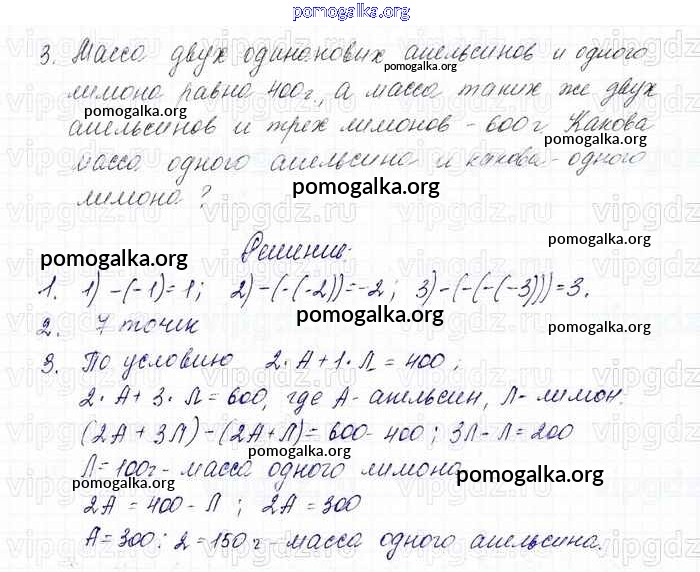 pomogalka.org
3. Масса двух одинаковых апельсинов и одного
pomogalka.org
лимона равна 400г, а масса таких же двух
pomogalka.org
pomogalka.org
апельсинов и трех лимонов - 600г. Какова
pomogalka.org
масса одного апельсина и какова - одного
pomogalka.org
лимона?
pomogalka.org
Решение
pomogalka.org
1. 1) -(-1)=1; 2) -(-(-2))=-2; 3) -(-(-(-3)))=3.
pomogalka.org
pomogalka.org
2. 7 точек
pomogalka.org
3. По условию 2·А+1·Л=400;
2·А+3·Л=600, где А- апельсин, Л- лимон.
(2А+3Л)-(2А+Л)=600-400; 3Л-Л=200
Л=100г- масса одного лимона
pomogalka.org
pomogalka.org
2А=400-Л; 2А=300
А=300:2=150г- масса одного апельсина.
pomogalka.org